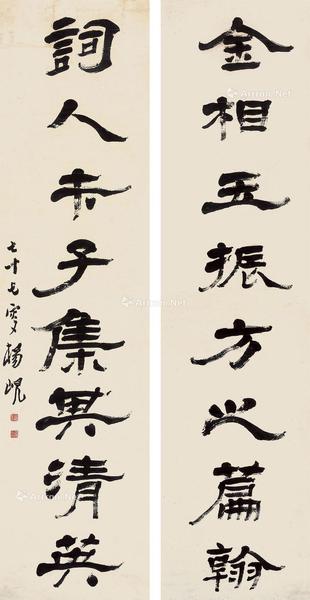 金相玉振方之篇翰
詞人才子集其清英
七十七叟楊峴
Artron.Net